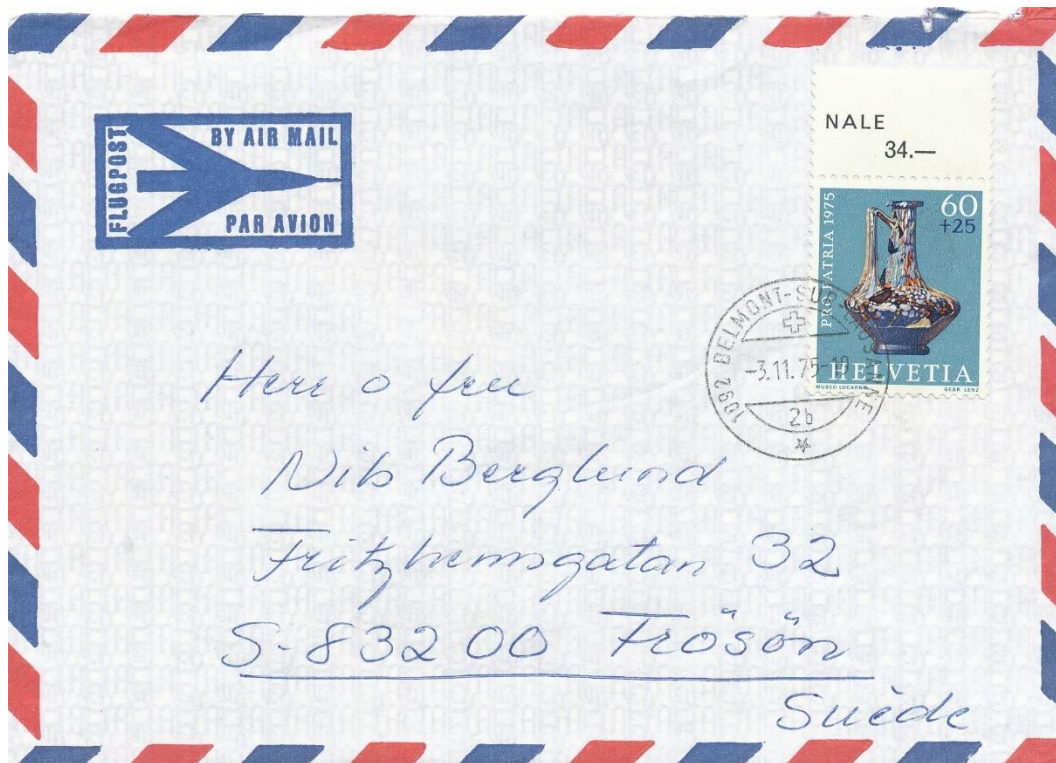 FLUGPOST
BY AIR MAIL
PAR AVION
NALE
34.—
PRO PATRIA 1975
60
+25
HELVETIA
MUSEO LOCARNO
GEBR. LENZ
1092 BELMONT-SUR-LAUSANNE
-3.11.75-19
2b
Herr o fru
Nils Berglund
Fritzhemsgatan 32
S-832 00 Frösön
Suède